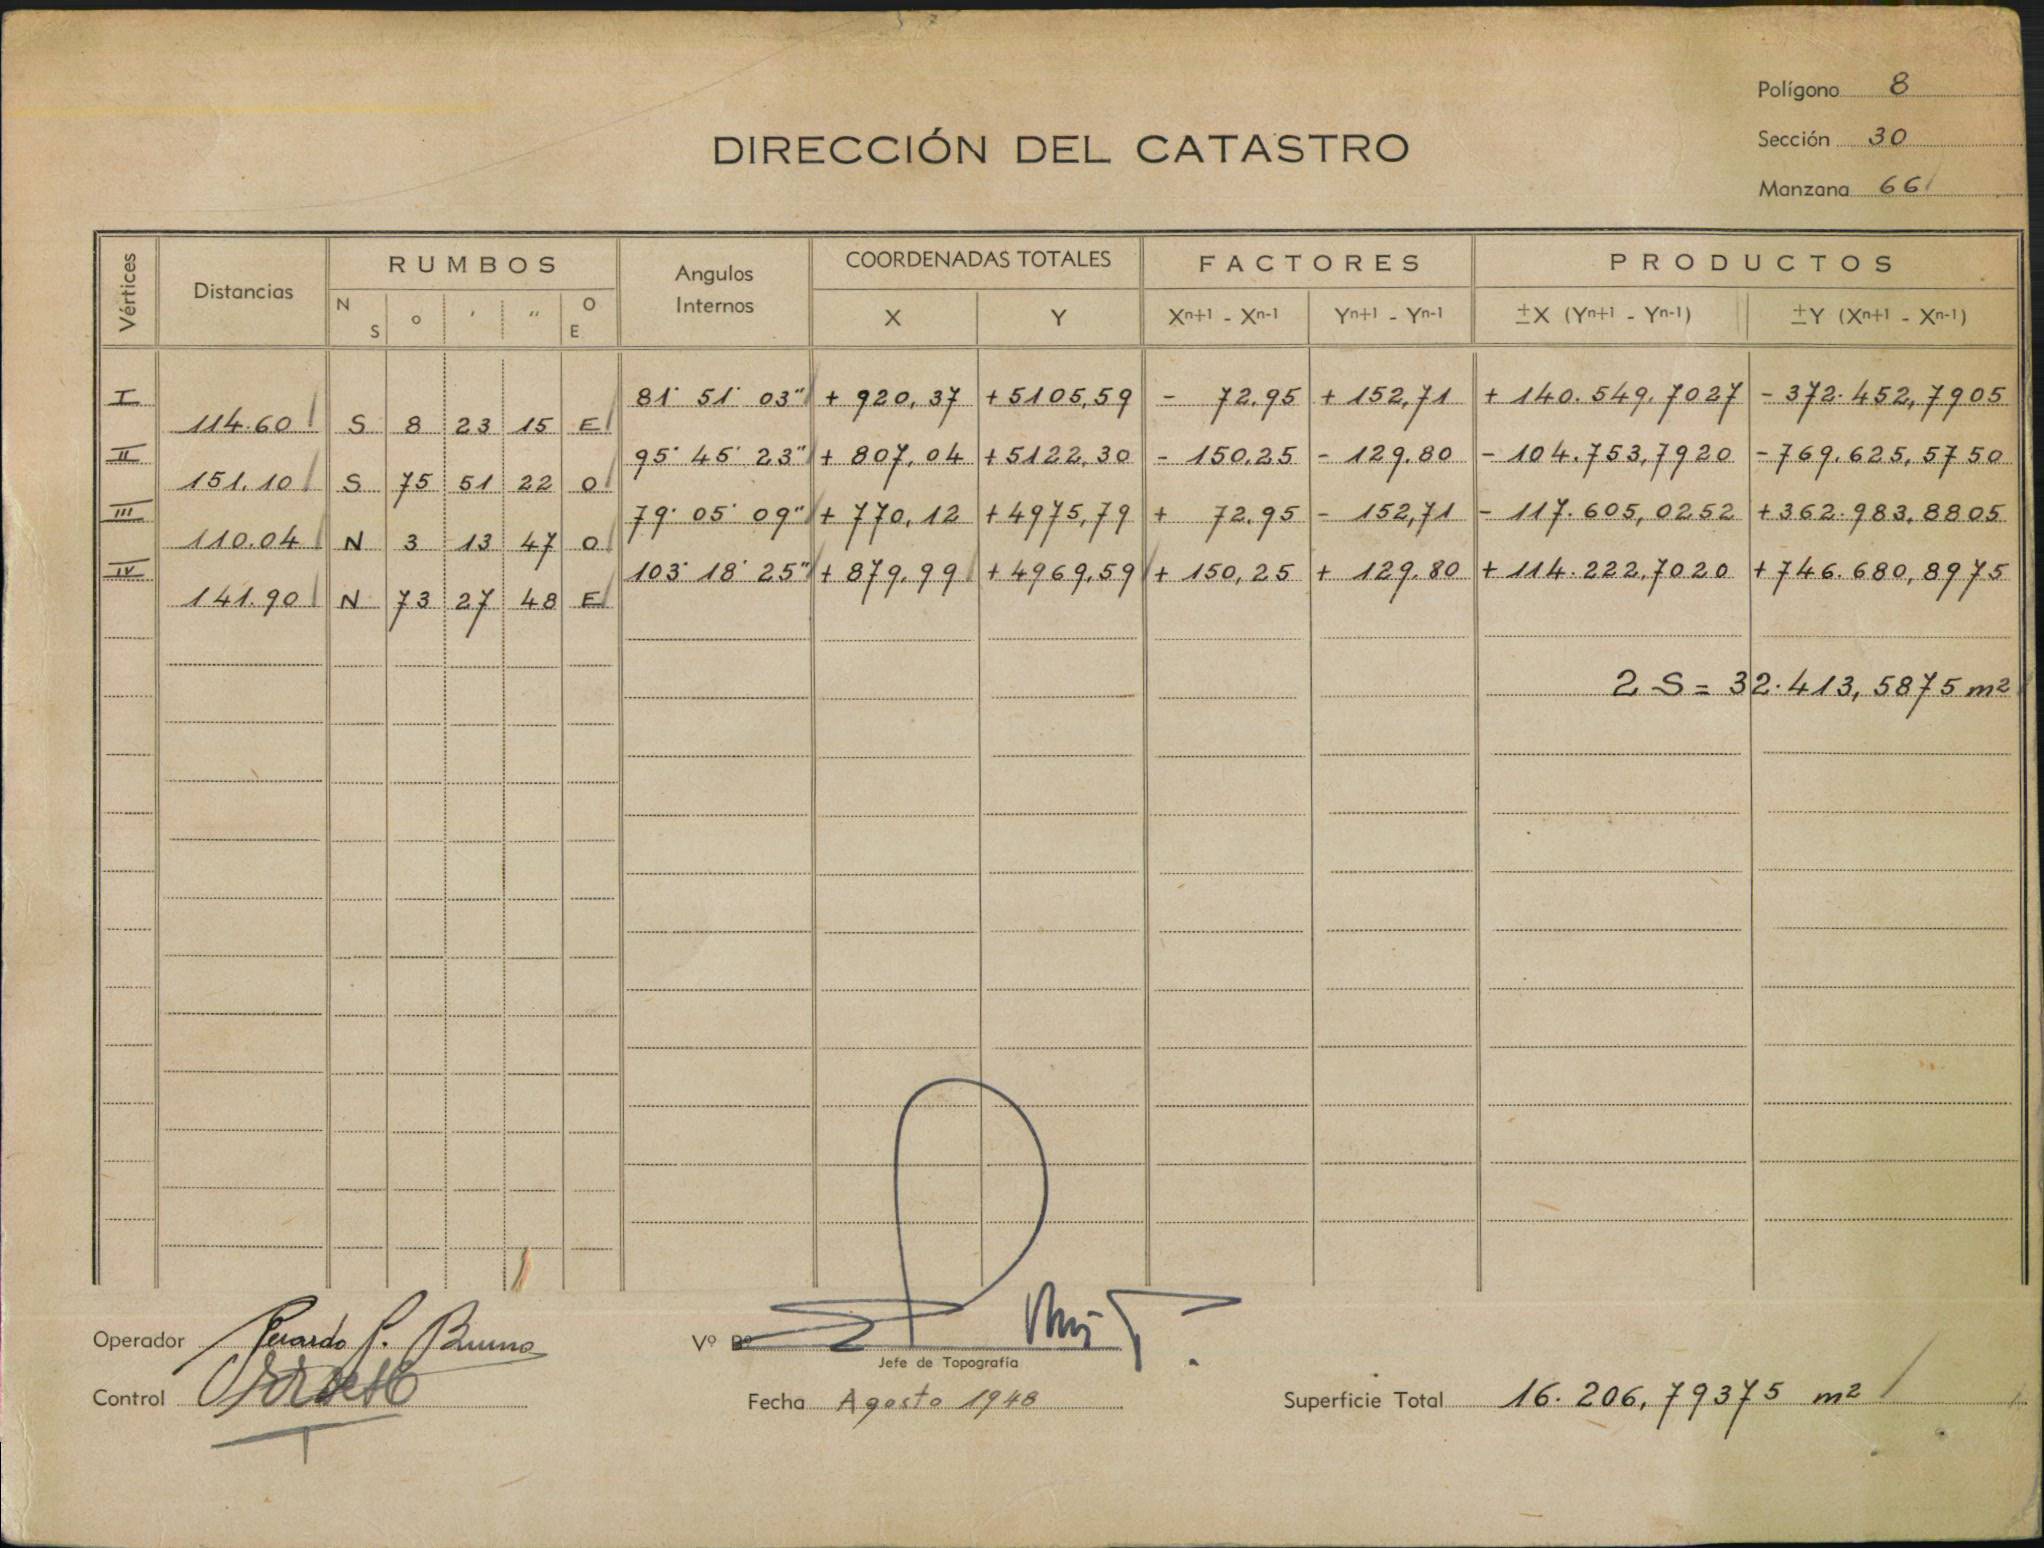 Polígono 8
DIRECCIÓN DEL CATASTRO
Sección 30
Manzana 66
Vértices Distancias RUMBOS Angulos Internos COORDENADAS TOTALES FACTORES PRODUCTOS
N S ° ' " O E X Y Xⁿ⁺¹ - Xⁿ⁻¹ Yⁿ⁺¹ - Yⁿ⁻¹ ±X (Yⁿ⁺¹ - Yⁿ⁻¹) ±Y (Xⁿ⁺¹ - Xⁿ⁻¹)
I 81° 51' 03" + 920,37 +5105,59 - 72,95 + 152,71 + 140.549,7027 - 372.452,7905
114.60 S 8 23 15 E
II 95° 45' 23" + 807,04 +5122,30 - 150,25 - 129.80 - 104.753,7920 - 769.625,5750
151.10 S 75 51 22 O
III 79° 05' 09" + 770,12 +4975,79 + 72,95 - 152,71 - 117.605,0252 +362.983,8805
110.04 N 3 13 47 O
IV 103° 18' 25" + 879,99 +4969,59 + 150,25 + 129.80 + 114.222,7020 +746.680,8975
141.90 N 73 27 48 E
2 S = 32.413,5875 m²
Operador Gerardo P. Bruno
Vº Bº
Jefe de Topografía
Control
Fecha Agosto 1948
Superficie Total 16.206,79375 m²